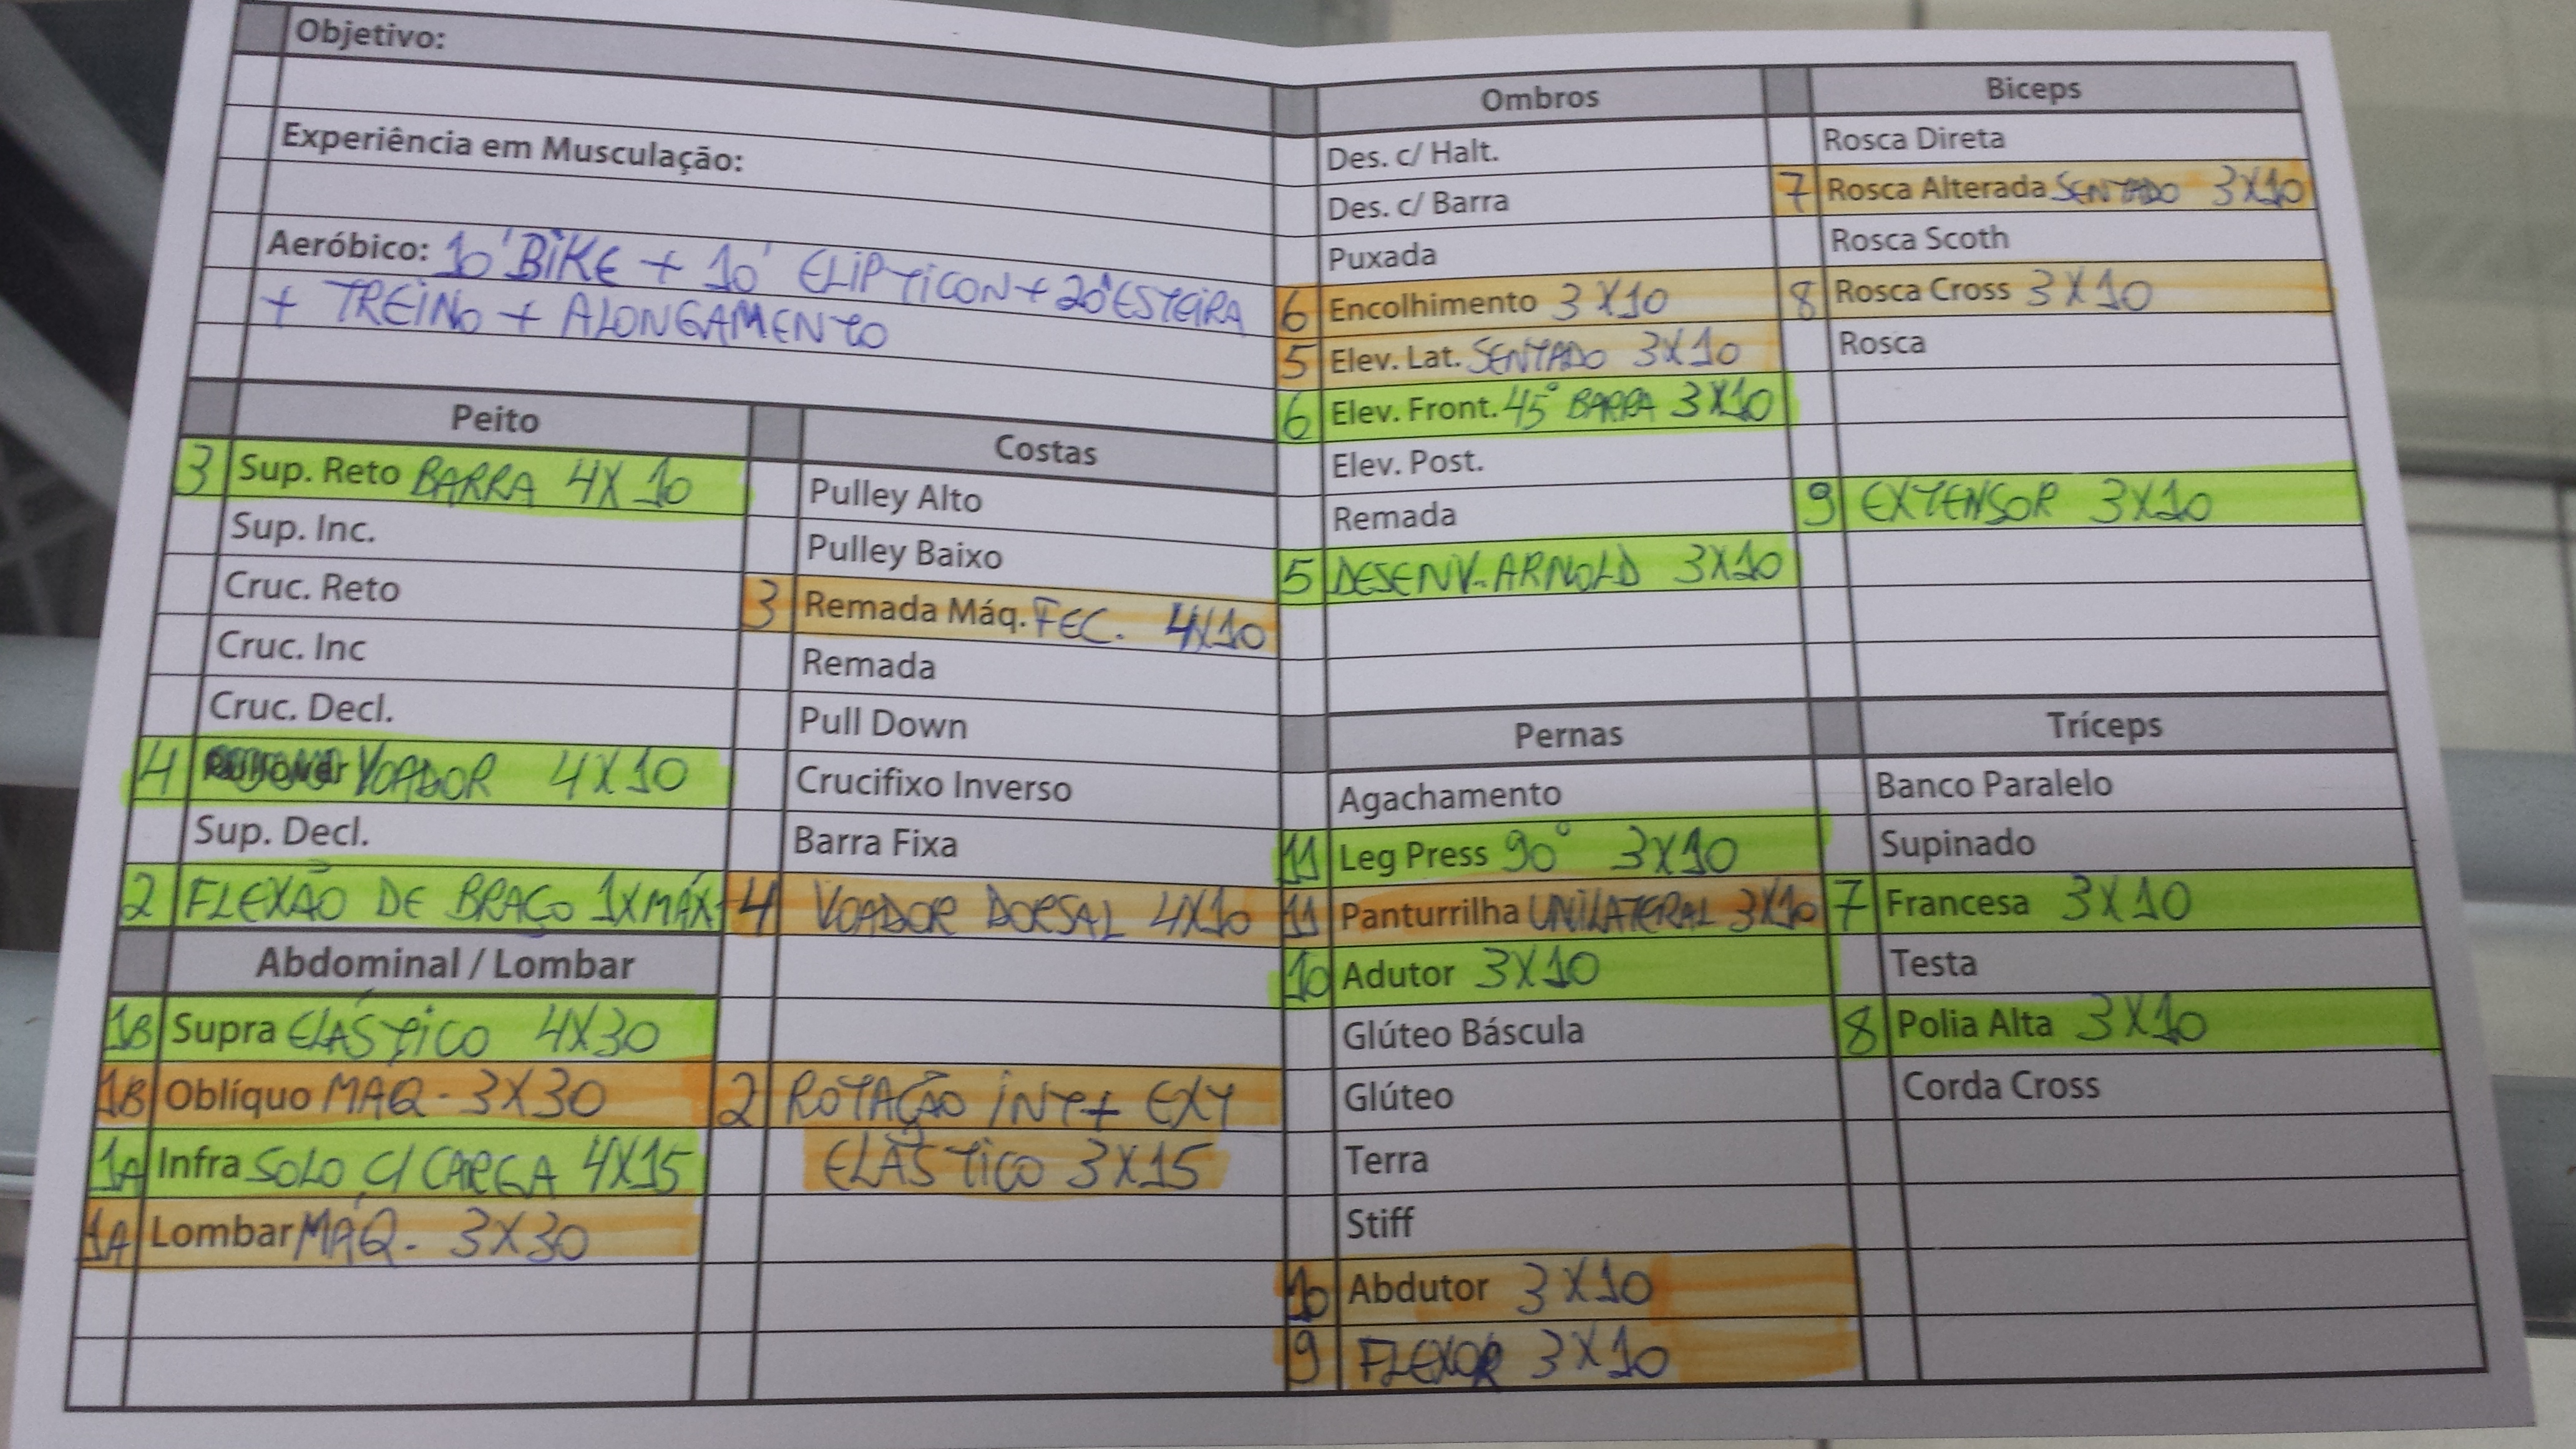 Objetivo:
Experiência em Musculação:
Aeróbico: 10' BIKE + 10' ELIPTICON + 20' ESTEIRA
+ TREINO + ALONGAMENTO
Peito
3 Sup. Reto BARRA 4X10
Sup. Inc.
Cruc. Reto
Cruc. Inc
Cruc. Decl.
4 VOADOR 4X10
Sup. Decl.
2 FLEXÃO DE BRAÇO 1XMÁX
Abdominal / Lombar
1B Supra ELÁSTICO 4X30
1B Oblíquo MAQ. 3X30
1A Infra SOLO C/ CARGA 4X15
1A Lombar MÁQ. 3X30
Costas
Pulley Alto
Pulley Baixo
3 Remada Máq. FEC. 4X10
Remada
Pull Down
Crucifixo Inverso
Barra Fixa
4 VOADOR DORSAL 4X10
2 ROTAÇÃO INT + EXT
ELÁSTICO 3X15
Ombros
Des. c/ Halt.
Des. c/ Barra
Puxada
6 Encolhimento 3X10
5 Elev. Lat. SENTADO 3X10
6 Elev. Front. 45° BARRA 3X10
Elev. Post.
Remada
5 DESENV. ARNOLD 3X10
Pernas
Agachamento
11 Leg Press 90° 3X10
11 Panturrilha UNILATERAL 3X10
10 Adutor 3X10
Glúteo Báscula
Glúteo
Terra
Stiff
10 Abdutor 3X10
9 FLEXOR 3X10
Biceps
Rosca Direta
7 Rosca Alterada SENTADO 3X10
Rosca Scoth
8 Rosca Cross 3X10
Rosca
9 EXTENSOR 3X10
Tríceps
Banco Paralelo
Supinado
7 Francesa 3X10
Testa
8 Polia Alta 3X10
Corda Cross